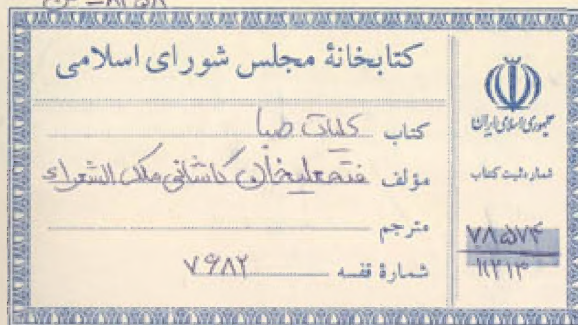 کتابخانهٔ مجلس شورای اسلامی
کتاب کلیات صبا
مؤلف فتحعلیخان کاشانی ملک الشعراء
مترجم
شمارهٔ قفسه ۷۶۸۲
جمهوری اسلامی ایران
شماره ثبت کتاب
۷۸۵۷۴